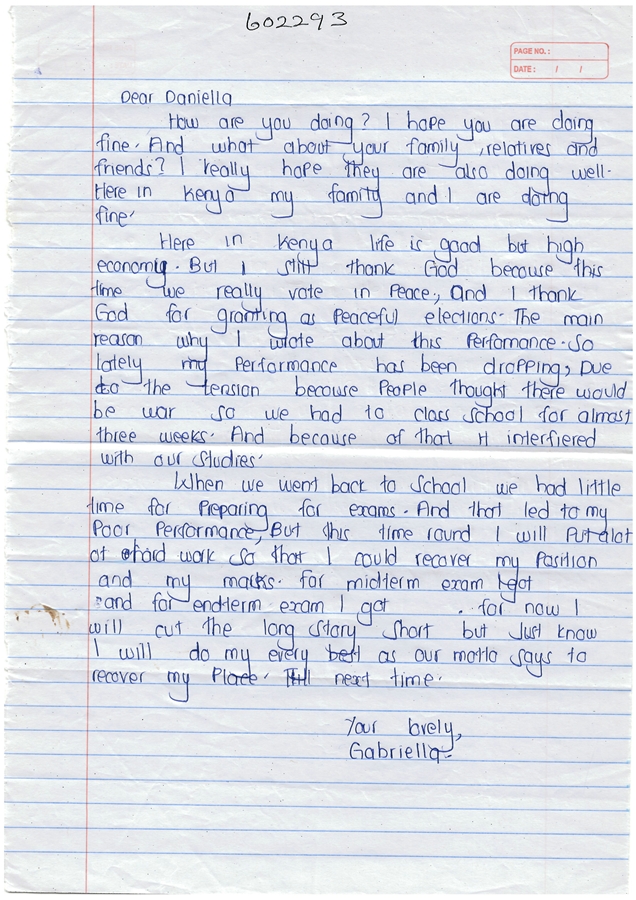 602293
PAGE NO.:
DATE: / /
Dear Daniella
How are you doing? I hope you are doing
fine. And what about your family, relatives and
friends? I really hope they are also doing well.
Here in Kenya my family and I are doing
fine.
Here in Kenya life is good but high
economy. But I still thank God because this
time we really vote in Peace, and I thank
God for granting as Peaceful elections. The main
reason why I wrote about this Perfomance. So
lately my Performance has been dropping, Due
to the tension because People thought there would
be war so we had to class school for almost
three weeks. And because of that it interfiered
with our studies.
When we went back to school we had little
time for Preparing for exams. And that led to my
Poor Performance, But this time round I will Put alot
of hard work so that I could recover my Position
and my marks. for midterm exam I got
and for endterm exam I got . for now I
will cut the long story short but Just know
I will do my every best as our motto says to
recover my Place. Till next time.
Your lovely,
Gabriella